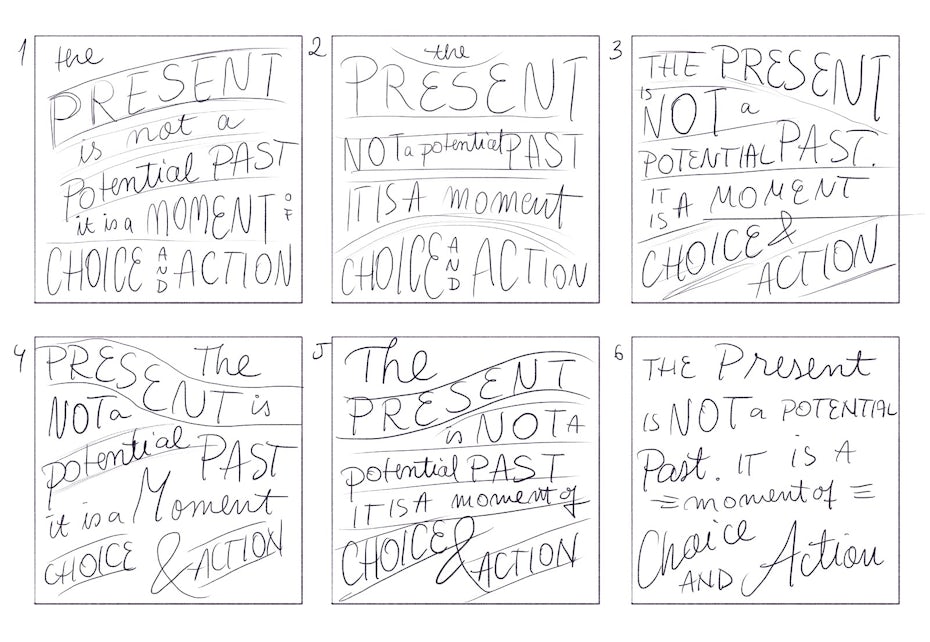 1
the
PRESENT
is not a
Potential PAST
it is a MOMENT OF
CHOICE AND ACTION
2
the
PRESENT
NOT a potential PAST
IT IS A moment
CHOICE AND ACTION
3
THE PRESENT
IS NOT a
POTENTIAL PAST.
IT IS A MOMENT
CHOICE &
ACTION
4
PRESENT The
NOT a is
potential PAST
it is a Moment
CHOICE & ACTION
5
The
PRESENT
is NOT A
potential PAST
IT IS A moment of
CHOICE & ACTION
6
THE Present
IS NOT a POTENTIAL
Past. IT IS A
moment of
Choice
AND Action